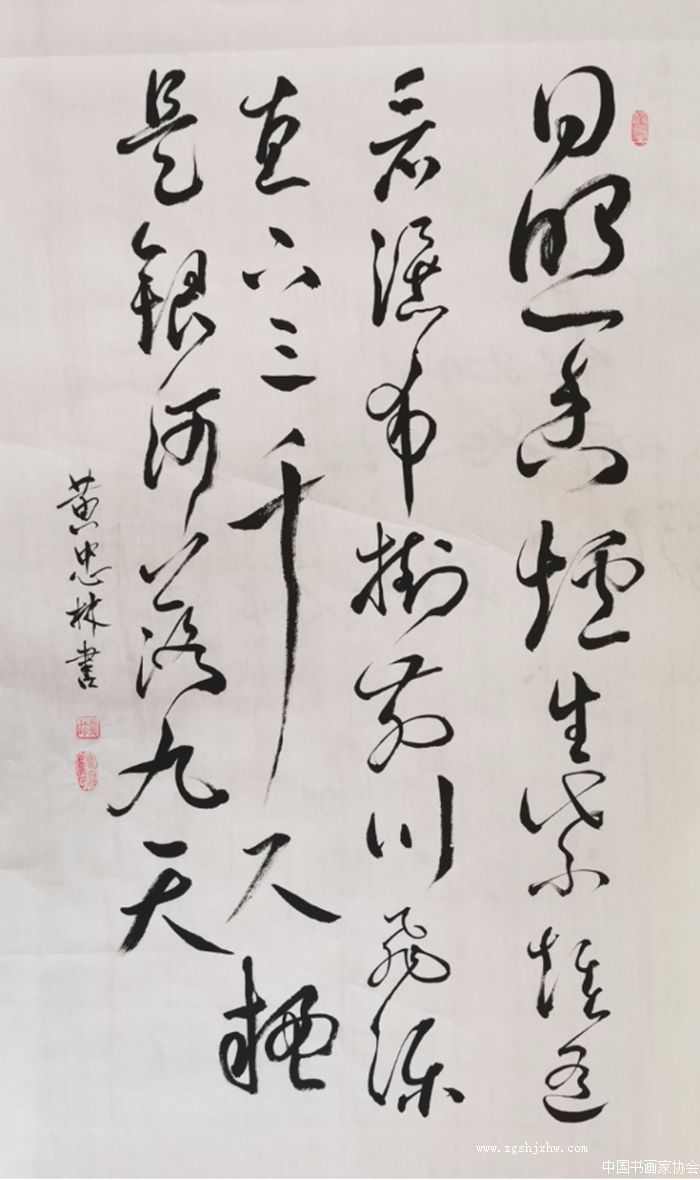 日照香爐生紫煙遙
看瀑布掛前川飛流
直下三千尺疑
是銀河落九天
黄忠林書
www.zgshjxhw.com
中国书画家协会